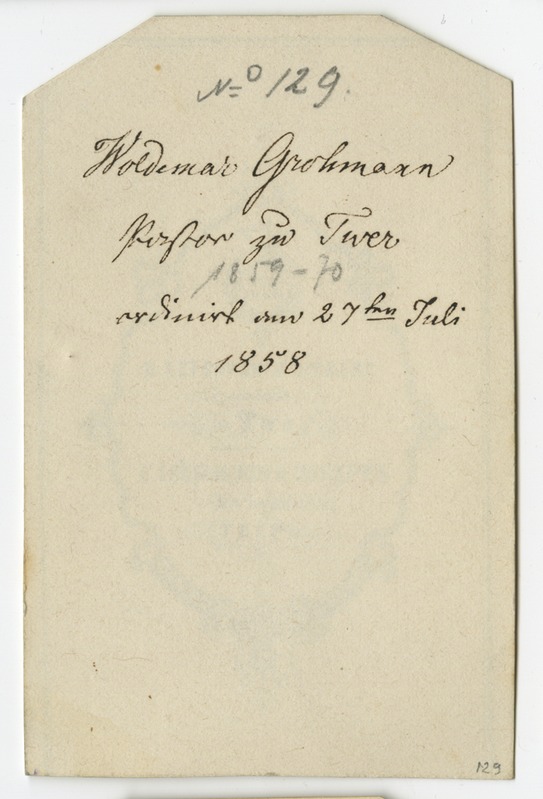 No 129.
Woldemar Grohmann
Pastor zu Twer
1859-70
ordinirt am 27ten Juli
1858
129